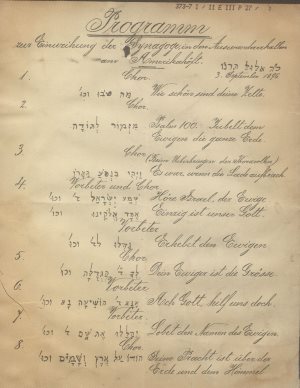 373-7 I / II E III P 27 / 2
Programm
zur Einweihung der Synagoge in den Auswandererhallen
am Amerikahöft.
כ״ה אלול תרנ״ו
3. September 1896
1. Chor.
מה טבו וכו׳ Wie schön sind deine Zelte.
2. Chor.
מזמור לתודה Psalm 100. Jubelt dem
Ewigen die ganze Erde
3. Chor
ויהי בנסע הארון Es war, wenn die Lade aufbrach
4. Vorbeter und Chor.
שמע ישראל ד׳ וכו׳ Höre Israel, der Ewige
אחד אלקינו וכו׳ Einzig ist unser Gott.
Vorbeter
גדלו לד׳ וכו׳ Erhebet den Ewigen
5. Chor
לך ד׳ הגדולה וכו׳ Dein Ewiger ist die Grösse
6. Vorbeter
אנא ד׳ הושיעה נא וכו׳ Ach Gott, hilf uns doch.
7. Vorbeter
יהללו את שם ד׳ וכו׳ Lobet den Namen des Ewigen.
8. Chor
הודו על ארץ ושמים וכו׳ Seine Pracht ist über der
Erde und dem Himmel